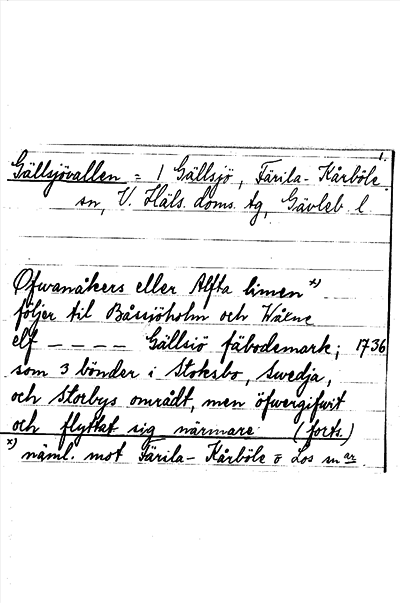 1.
Gällsjövallen = 1 Gällsjö, Färila-Kårböle
sn, V. Häls. doms. tg, Gävleb. l
Ofwanåkers eller Alfta limen x)
följer til Båssjöholm och Wåxne
elf – – – – Gällsiö fäbodemark; 1736
som 3 bönder i Stoksbo, Swedja,
och Storbys områdt, men öfwergifwit
och flyttat sig närmare (forts.)
x) näml. mot Färila-Kårböle o Los snar